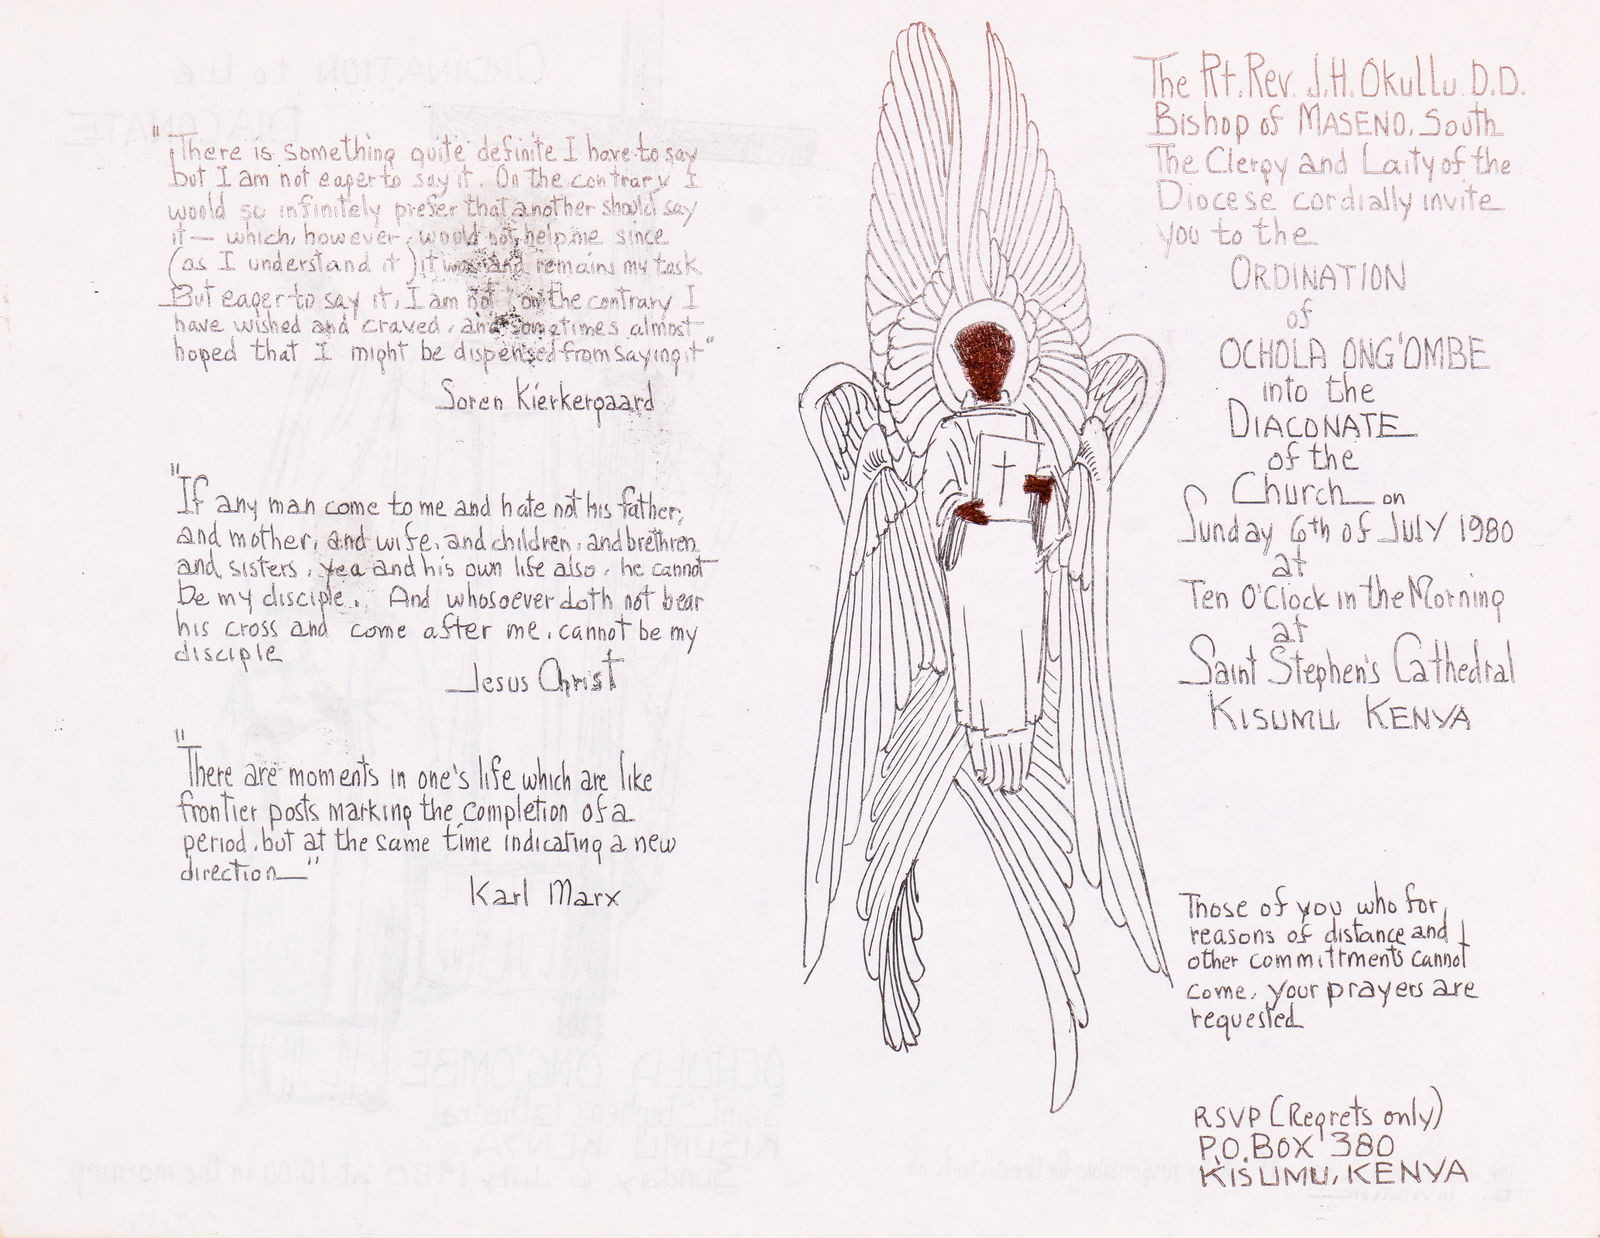 "There is something quite definite I have to say
but I am not eager to say it. On the contrary I
would so infinitely prefer that another should say
it — which, however, would not help me since
(as I understand it) it was and remains my task
But eager to say it, I am not, on the contrary I
have wished and craved, and sometimes almost
hoped that I might be dispensed from saying it"
Soren Kierkergaard
"If any man come to me and hate not his father,
and mother, and wife, and children, and brethren
and sisters, yea and his own life also, he cannot
be my disciple. And whosoever doth not bear
his cross and come after me, cannot be my
disciple
Jesus Christ
"There are moments in one's life which are like
frontier posts marking the completion of a
period, but at the same time indicating a new
direction—"
Karl Marx
The Rt. Rev. J.H. Okullu D.D.
Bishop of MASENO, South
The Clergy and Laity of the
Diocese cordially invite
you to the
ORDINATION
of
OCHOLA ONG'OMBE
into the
DIACONATE
of the
Church on
Sunday 6th of July 1980
at
Ten O'Clock in the Morning
at
Saint Stephen's Cathedral
KISUMU, KENYA
Those of you who for,
reasons of distance and
other committments cannot
come, your prayers are
requested
RSVP (Regrets only)
P.O. BOX 380
KISUMU, KENYA